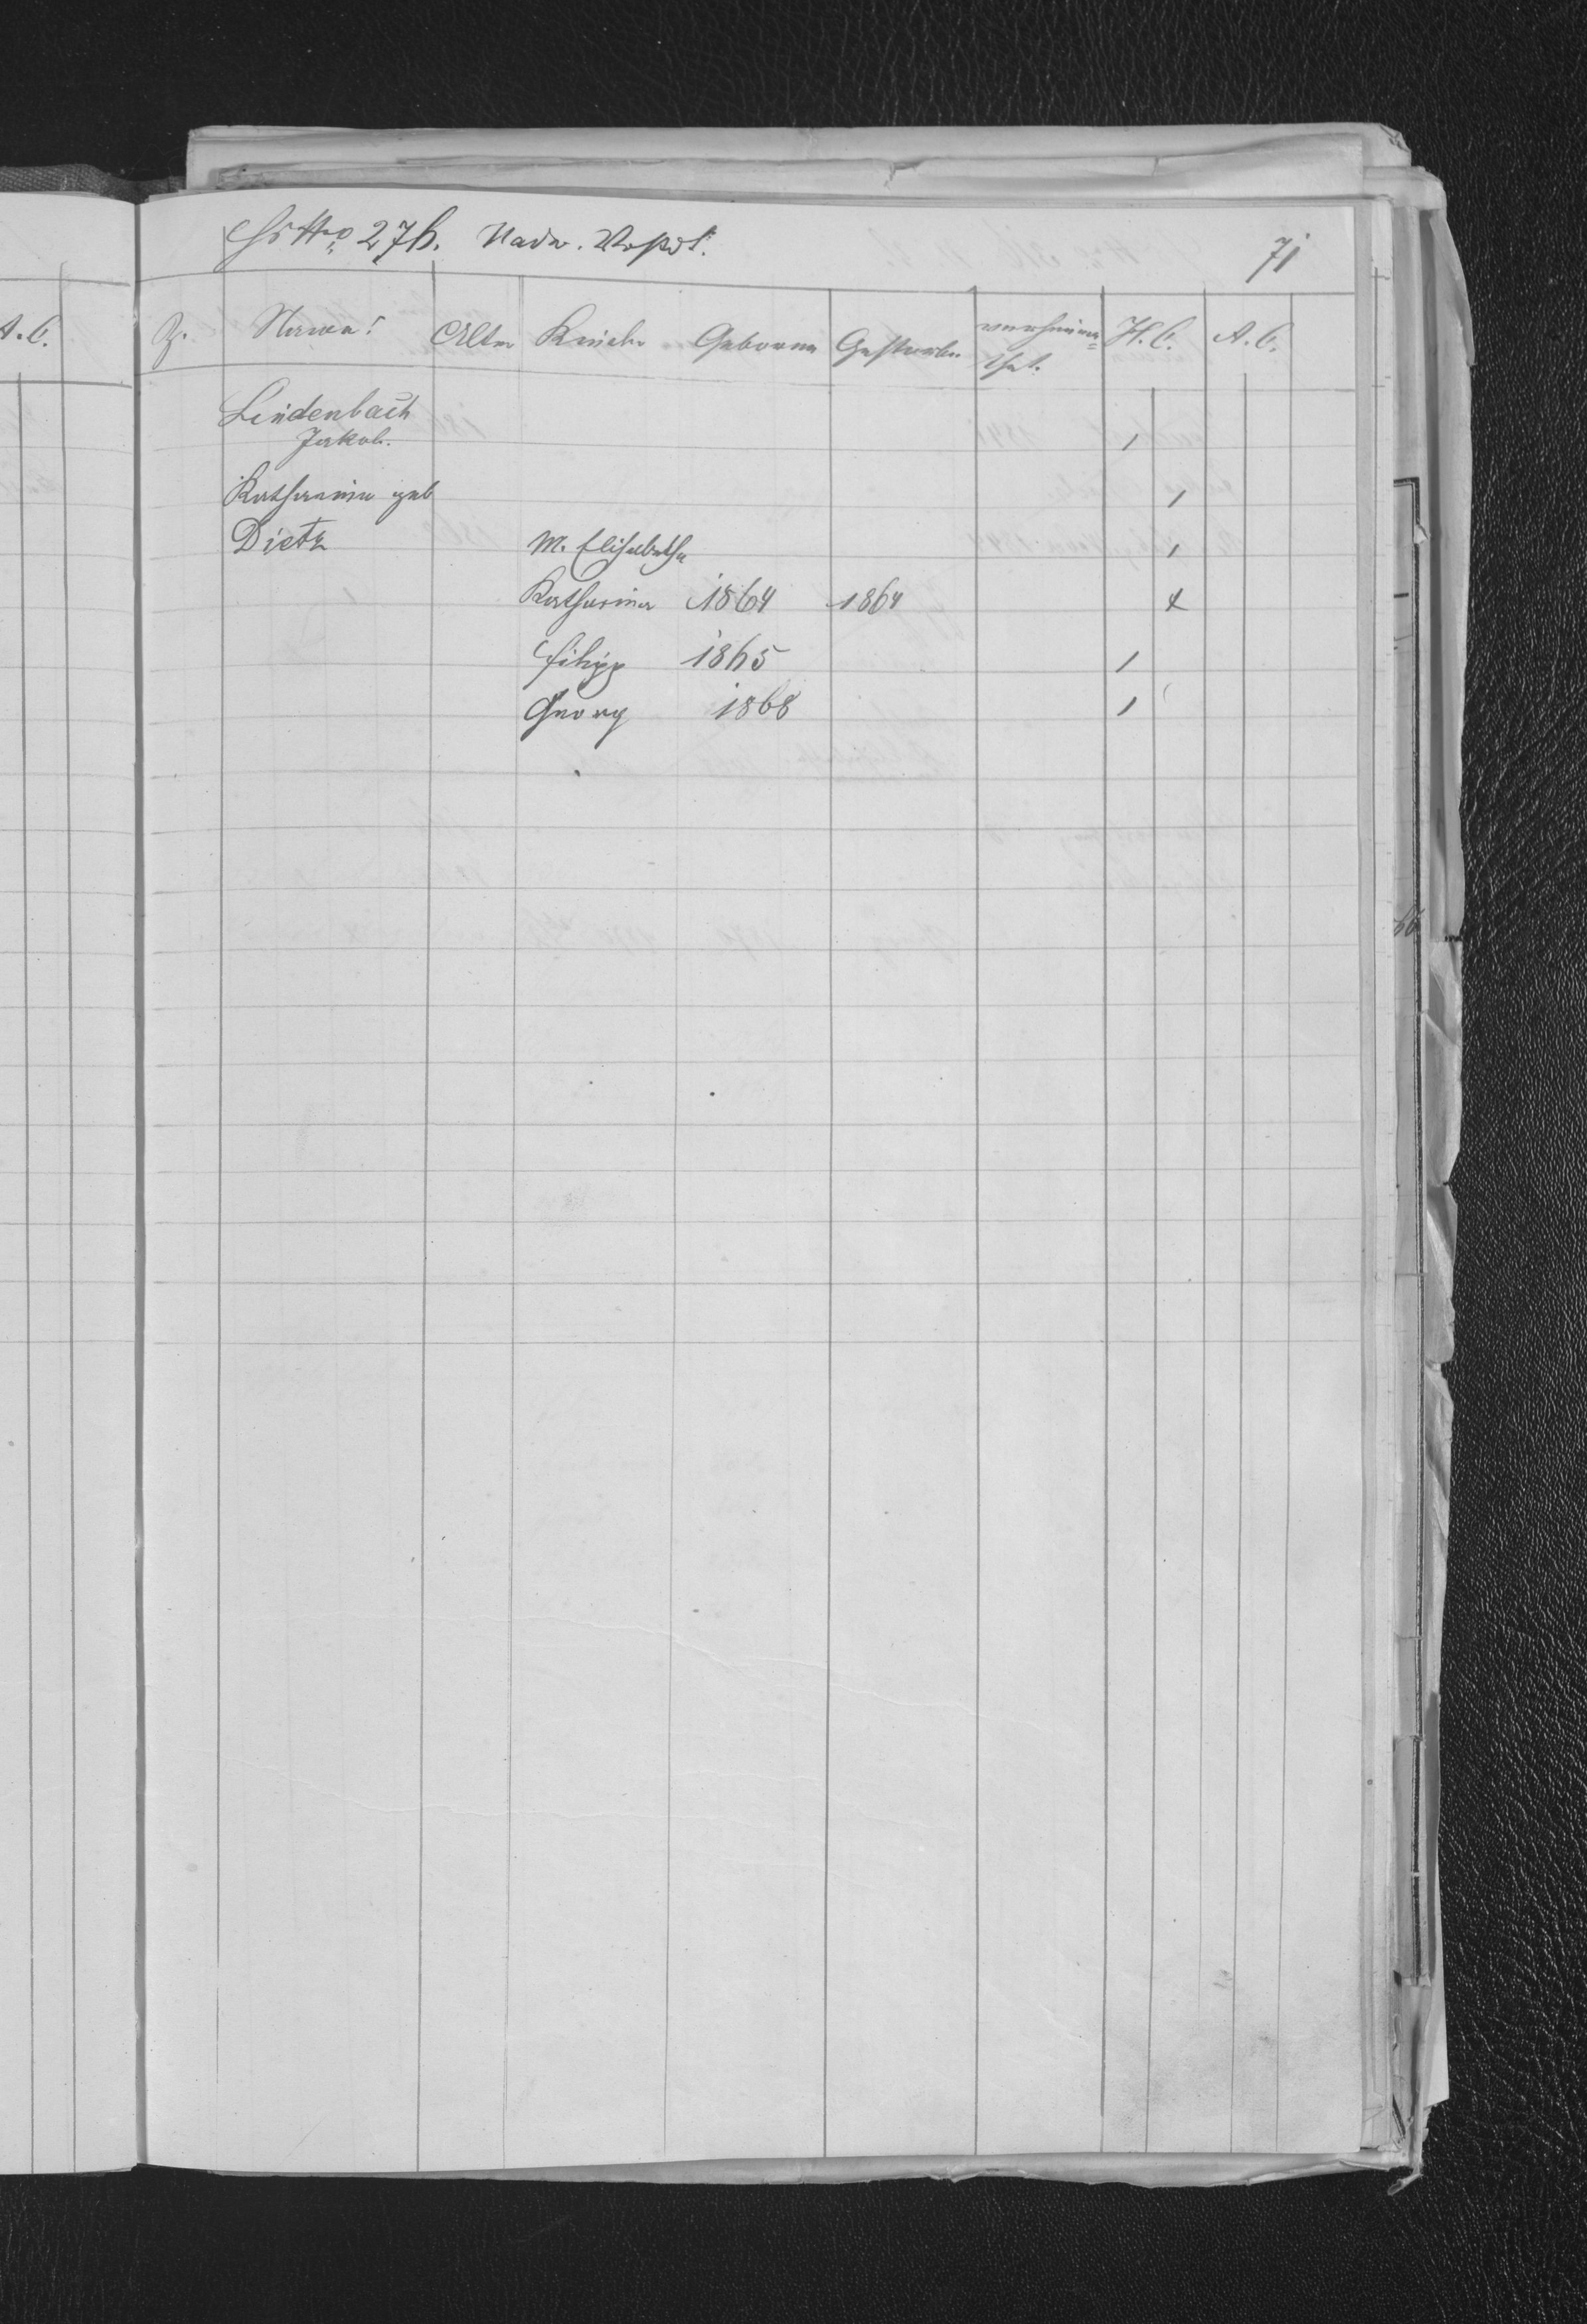 Hs Nro 276. 71
A.C.
Z. Name: Alter Kinder Geboren Gestorben H.C. A.C.
Lindenbach
Jakob. 1
Katharina geb 1
Dietz M. Elisabetha 1
Katharina 1864 1864 x
Filipp 1865 1
Georg 1868 1